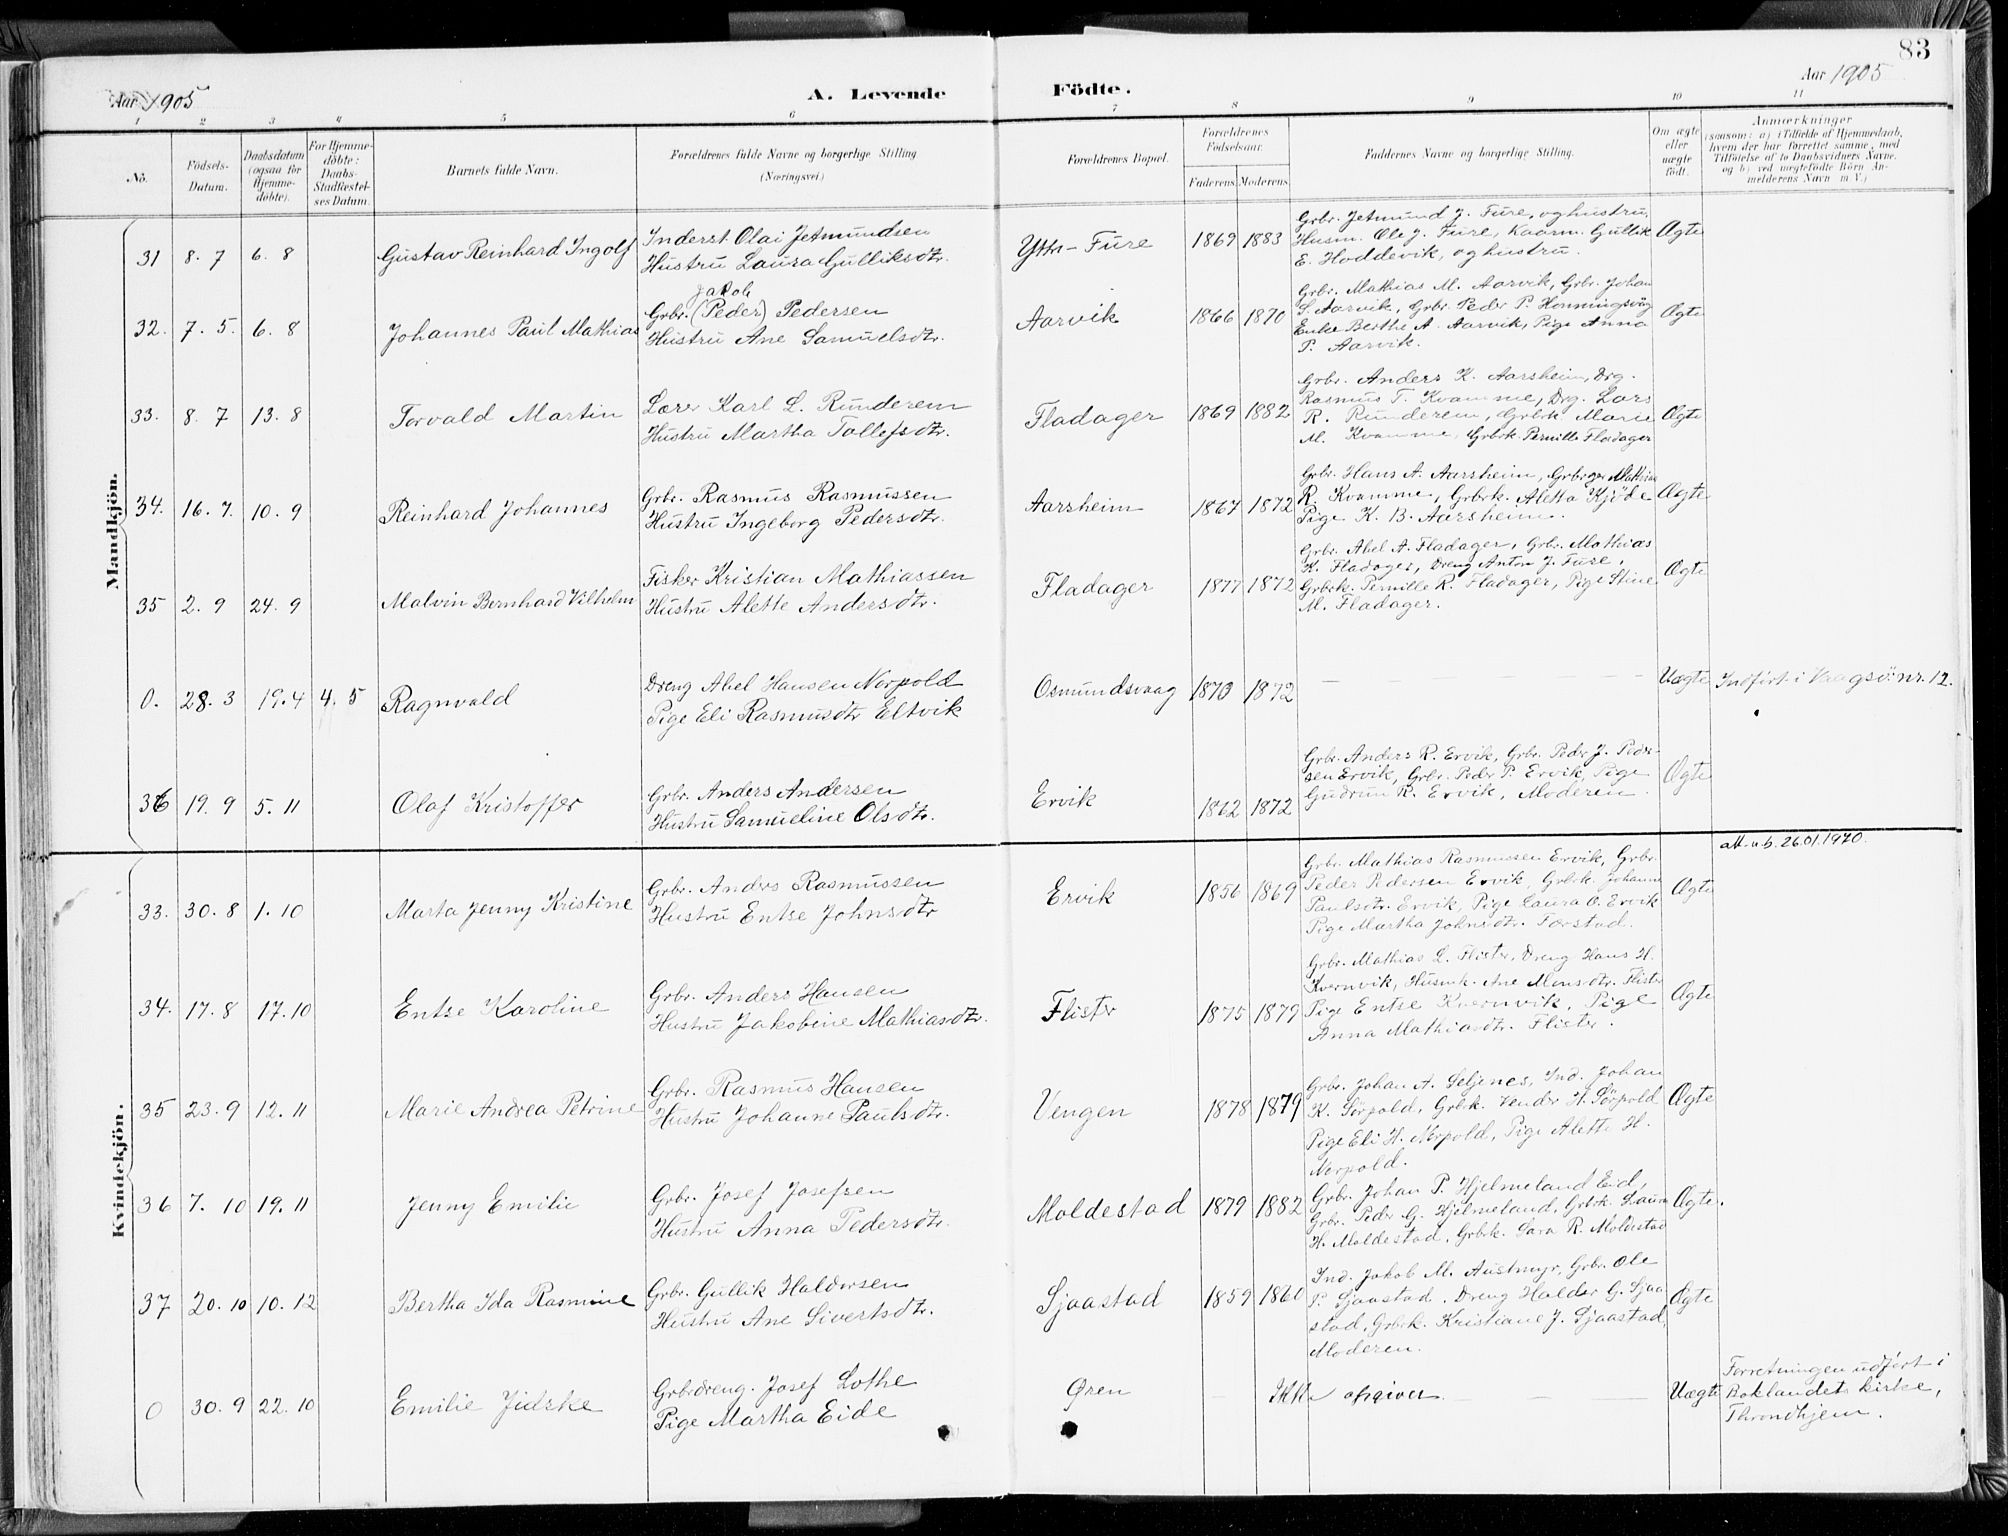 83
Aar 1905
A. Levende Födte.
Aar 1905
1 2 3 4 5 6 7 8 9 10 11
No.
Födsels-
Datum.
Daabsdatum
(ogsaa for
Hjemme-
döbte).
For Hjemme-
döbte:
Daabs-
Stadfæstel-
ses Datum.
Barnets fulde Navn.
Forældrenes fulde Navne og borgerlige Stilling
(Næringsvei.)
Forældrenes Bopæl.
Forældrenes
Födselsaar.
Faderens. Moderens.
Faddernes Navne og borgerlige Stilling.
Om ægte
eller
uægte
födt.
Anmærkninger
(saasom: a) i Tilfælde af Hjemmedaab,
hvem der har forrettet samme, med
Tilföielse af to Daabsvidners Navne.
og b) ved uægtefödte Börn An-
melderens Navn m. V.)
Mandkjön.
31 8. 7 6. 8 Gustav Reinhard Ingolf
Inderst. Olai Jetmundsen
Hustru Laura Gulliksdtr.
Ytre-Fure 1869 1883
Grbr. Jetmund J. Fure, og hustru,
Husm. Ole J. Fure, Kaarm. Gullik
E. Hoddevik, og hustru.
Ægte
32. 7. 5. 6. 8 Johannes Paul Mathias
Jakob
Grbr. (Peder) Pedersen
Hustru Ane Samuelsdtr.
Aarvik 1866 1870
Grbr. Mathias M. Aarvik, Grbr. Johan
S. Aarvik, Grbr. Peder P. Honningsvåg
Enke Berthe A. Aarvik, Pige Anna
P. Aarvik.
Ægte
33. 8. 7 13. 8 Torvald Martin
Lærer Karl L. Runderem
Hustru Martha Tollefsdtr.
Fladager 1869 1882
Grbr. Anders K. Aarsheim, Drg.
Rasmus T. Kvamme, Drg. Lars
R. Runderem, Grbrk. Marie
M. Kvamme, Grbrk. Pernille Fladager
Ægte
34. 16. 7. 10. 9 Reinhard Johannes
Grbr. Rasmus Rasmussen
Hustru Ingeborg Pedersdtr.
Aarsheim 1867 1872
Grbr. Hans A. Aarsheim, Mathias
R. Kvamme, Grbrk. Aletta Kjöde
Pige K. B. Aarsheim.
Ægte
35 2. 9 24. 9 Malvin Bernhard Vilhelm
Fisker Kristian Mathiassen
Hustru Alette Andersdtr.
Fladager 1877 1872
Grbr. Abel A. Fladager, Grbr. Mathias
K. Fladager, Dreng Anton J. Fure,
Grbrk. Pernille R. Fladager, Pige Stine
M. Fladager.
Ægte
0. 28. 3 19. 4 4. 5 Ragnvald
Dreng Abel Hansen Norpold
Pige Eli Rasmusdtr Eltvik
Osmundsvaag 1873 1872
Uægte
Indfört i Vaagsö nr. 12.
36 19. 9 5. 11 Olaf Kristoffer
Grbr. Anders Andersen
Hustru Samueline Olsdtr.
Ervik 1862 1872
Grbr. Anders R. Ervik, Grbr. Peder J. Peder-
sen Ervik, Grbr. Peder P. Ervik, Pige
Gudrun R. Ervik, Moderen.
Ægte
Kvindekjön.
33. 30. 8 1. 10 Marta Jenny Kristine
Grbr. Anders Rasmussen
Hustru Entse Johnsdtr
Ervik 1856 1869
Grbr. Mathias Rasmussen Ervik, Grbr.
Peder Pedersen Ervik, Grbrk. Johanne
Paulsdtr. Ervik, Pige Laura O. Ervik
Pige Martha Johnsdtr. Torstad.
Ægte
att. u.b. 26.01.1970.
34. 17. 8 17. 10 Entse Karoline
Grbr. Anders Hansen
Hustru Jakobine Mathiasdtr.
Flister 1875 1879
Grbr. Mathias L. Flister, Dreng Hans H.
Kvernvik, Husmk. Ane Monsdtr. Flister
Pige Entse Kvernvik, Pige
Anna Mathiasdtr. Flister.
Ægte
35 23. 9 12. 11 Marie Andrea Petrine
Grbr. Rasmus Hansen
Hustru Johanne Paulsdtr.
Vengen 1878 1879
Grbr. Johan A. Seljenes, Ind. Johan
K. Sörpold, Grbrk. H. Sörpold
Pige Eli H. Norpold, Pige Alette H.
Norpold.
Ægte
36 7. 10 19. 11 Jenny Emilie
Grbr. Josef Josefsen
Hustru Anna Pedersdtr.
Moldestad 1879 1882
Grbr. Johan P. Hjelmeland Eid,
Grbr. Peder G. Hjelmeland, Grbrk. Laura
H. Moldestad, Grbrk. Sara R. Moldestad
Ægte.
37 20. 10 10. 12 Bertha Ida Rasmine
Grbr. Gullik Haldorsen
Hustru Ane Sivertsdtr.
Sjaastad 1859 1860
Ind. Jakob M. Austmyr, Grbr. Ole
P. Sjaastad, Dreng Haldor G. Sjaa-
stad, Grbrk. Kristiane J. Sjaastad,
Moderen.
Ægte
0 30. 9 22. 10 Emilie Jidske
Grbrdreng. Josef Lothe
Pige Martha Eide
Øren
Ikke opgiven.
Uægte
Forretningen udfört i
Baklandets kirke,
Throndhjem.